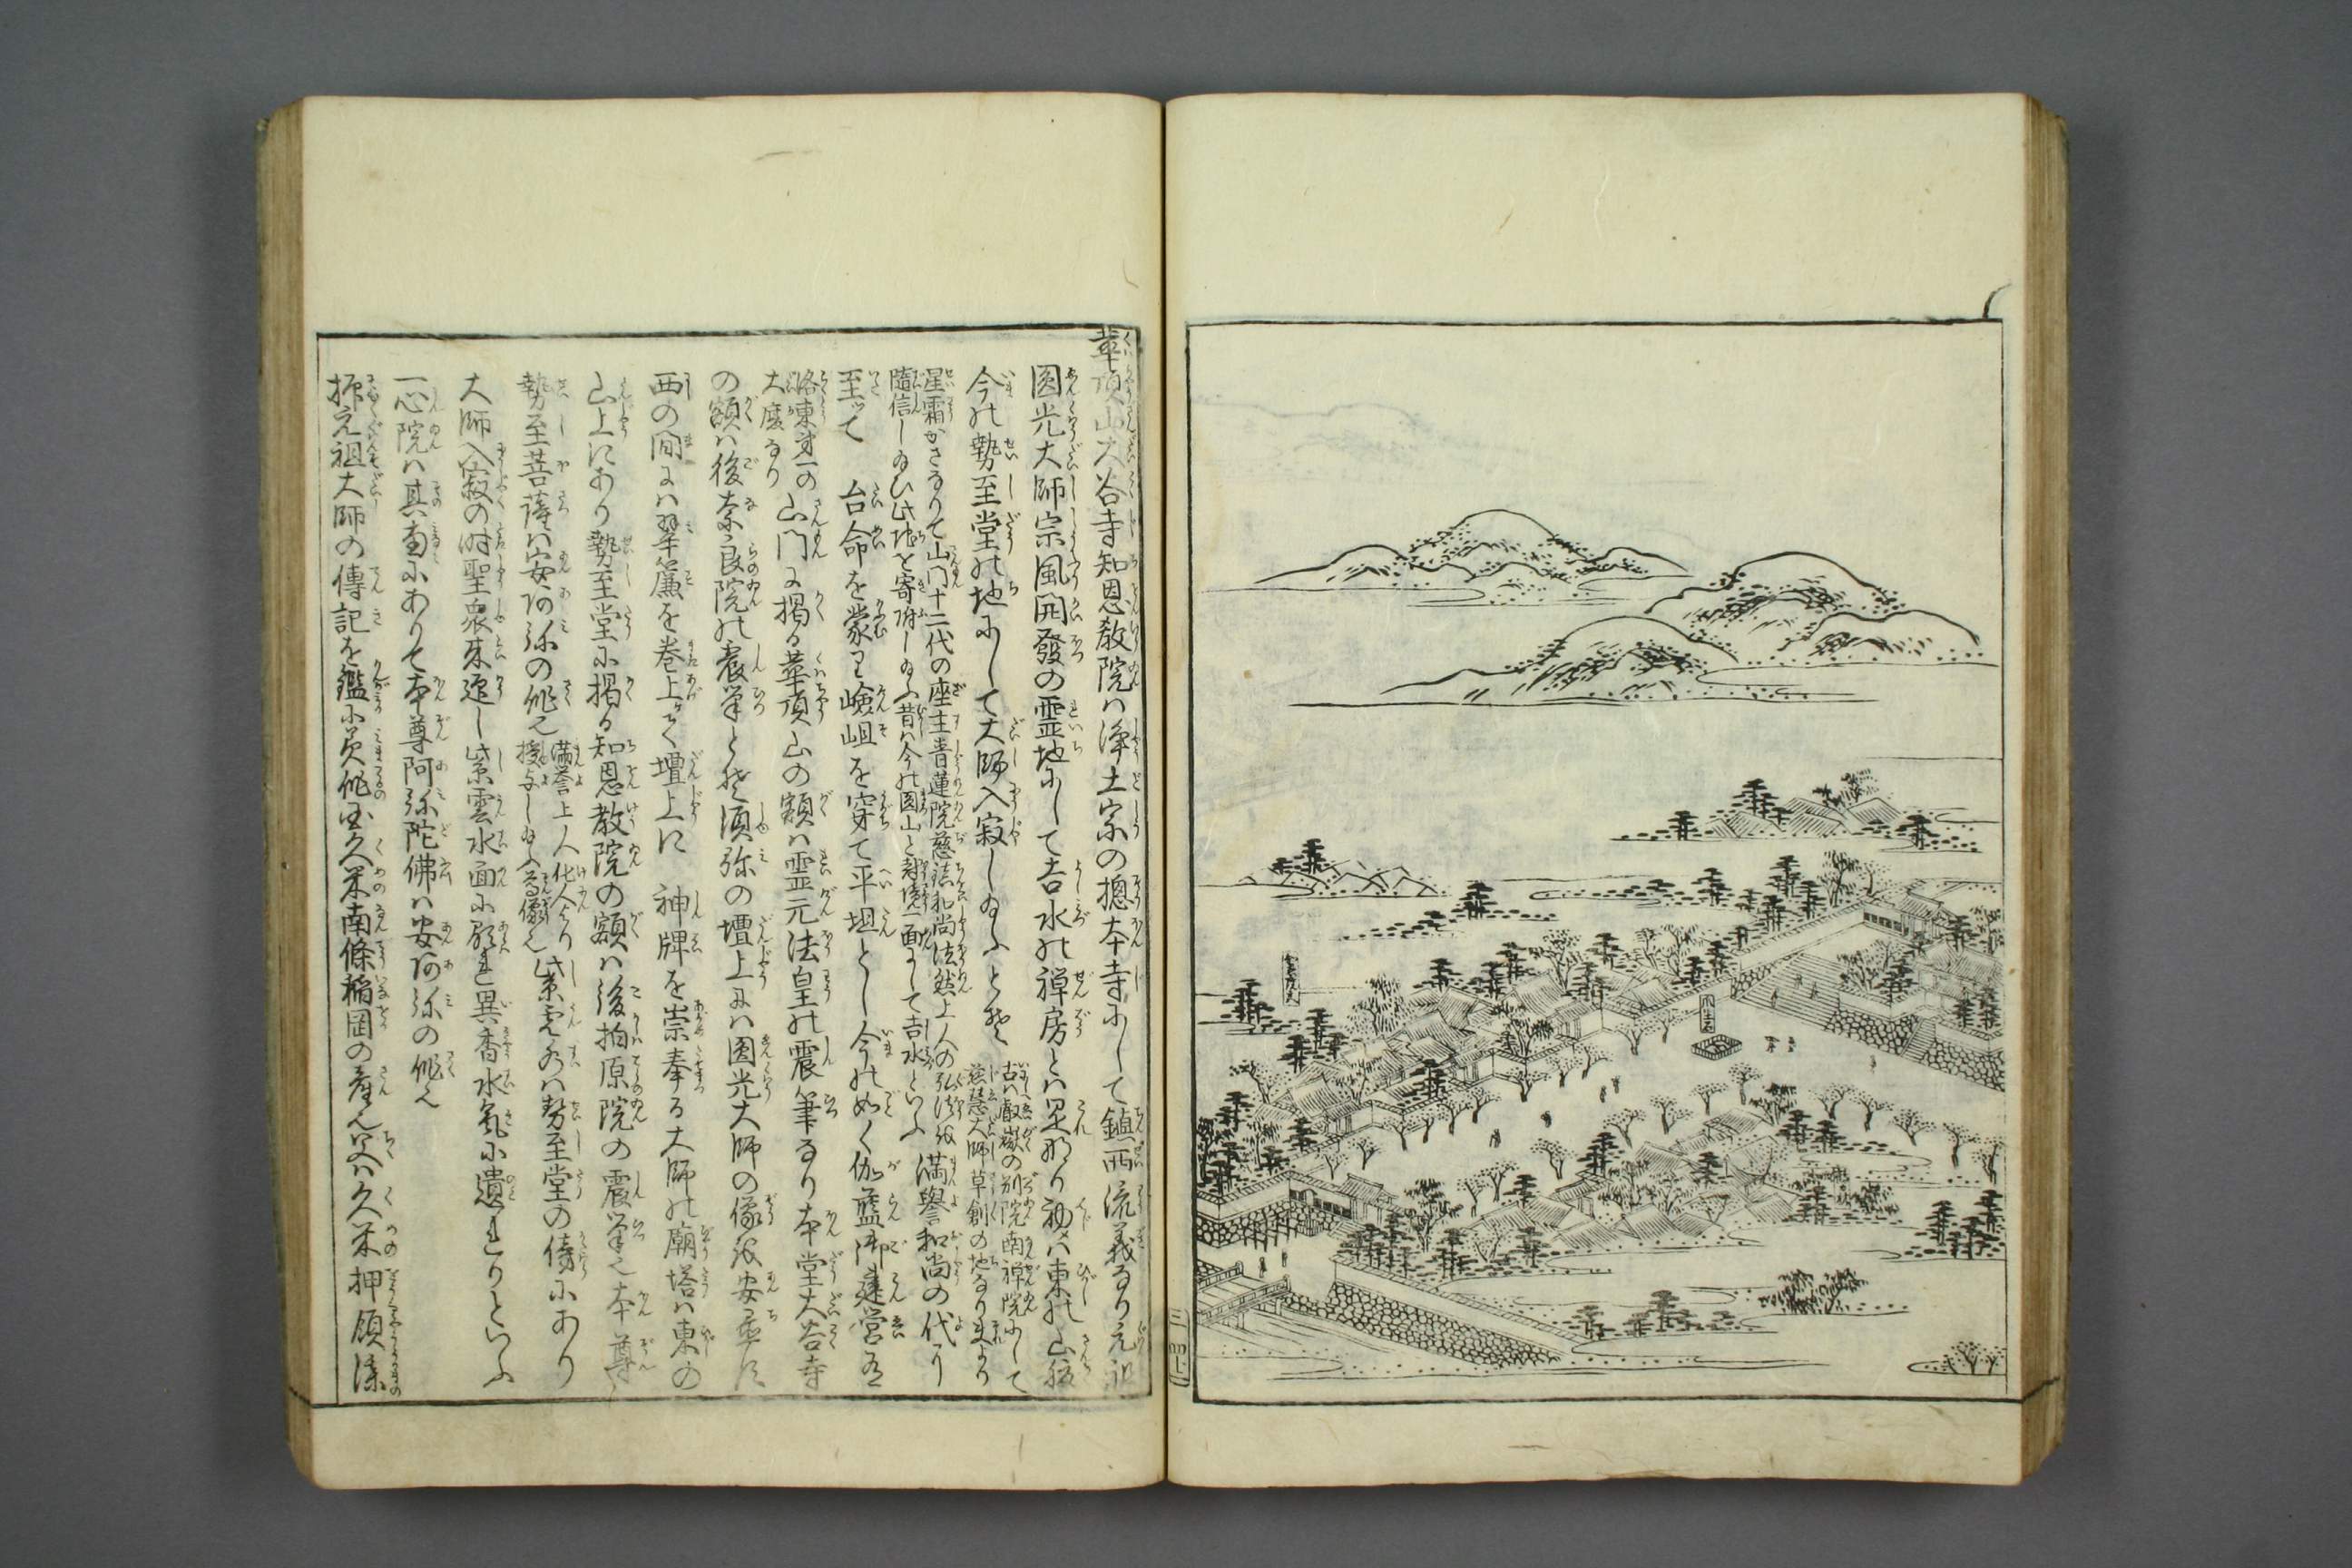 瓜生石
華頂山大谷寺知恩教院ハ浄土宗の摠本寺にして鎮西流義なり元祖
圓光大師宗風開發の霊地にして吉水の禅房とハ是なり初ハ東の山腹
今の勢至堂の地にして大師入寂し給ふとぞ
古ハ叡嶽の別院南禅院にして
慈慧大師草創の地なりまより
星霜かさなりて山門十二代の座主青蓮院慈鎮和尚法然上人の弘法を
隨信し給ひ此地を寄附し給ふ昔ハ今の圓山と封境一面にして吉水といふ
満譽和尚の代に
至ッて 台命を蒙り嶮岨を穿て平坦とし今の如く伽藍御建営有
洛東第一の
大廈なり
山門に揭る華頂山の額ハ霊元法皇の震筆なり本堂大谷寺
の額ハ後奈良院の宸筆とぞ須弥の壇上にハ圓光大師の像を安置す
西の間にハ翠簾を巻上げて壇上に 神牌を崇奉る大師の廟塔ハ東の
山上にあり勢至堂に揭る知恩教院の額ハ後柏原院の震筆也本尊
勢至菩薩ハ安阿弥の作也
満誉上人化人より
授与し給ふ尊像也
紫雲水ハ勢至堂の傍にあり
大師入寂の時聖衆来迎し紫雲水面に顕れ異香水氣に遺れりといふ
一心院ハ其南にありて本尊阿弥陀佛ハ安阿弥の作也
抑元祖大師の傳記を鑑に美作国久米南條稲岡の産也父ハ久米押領使